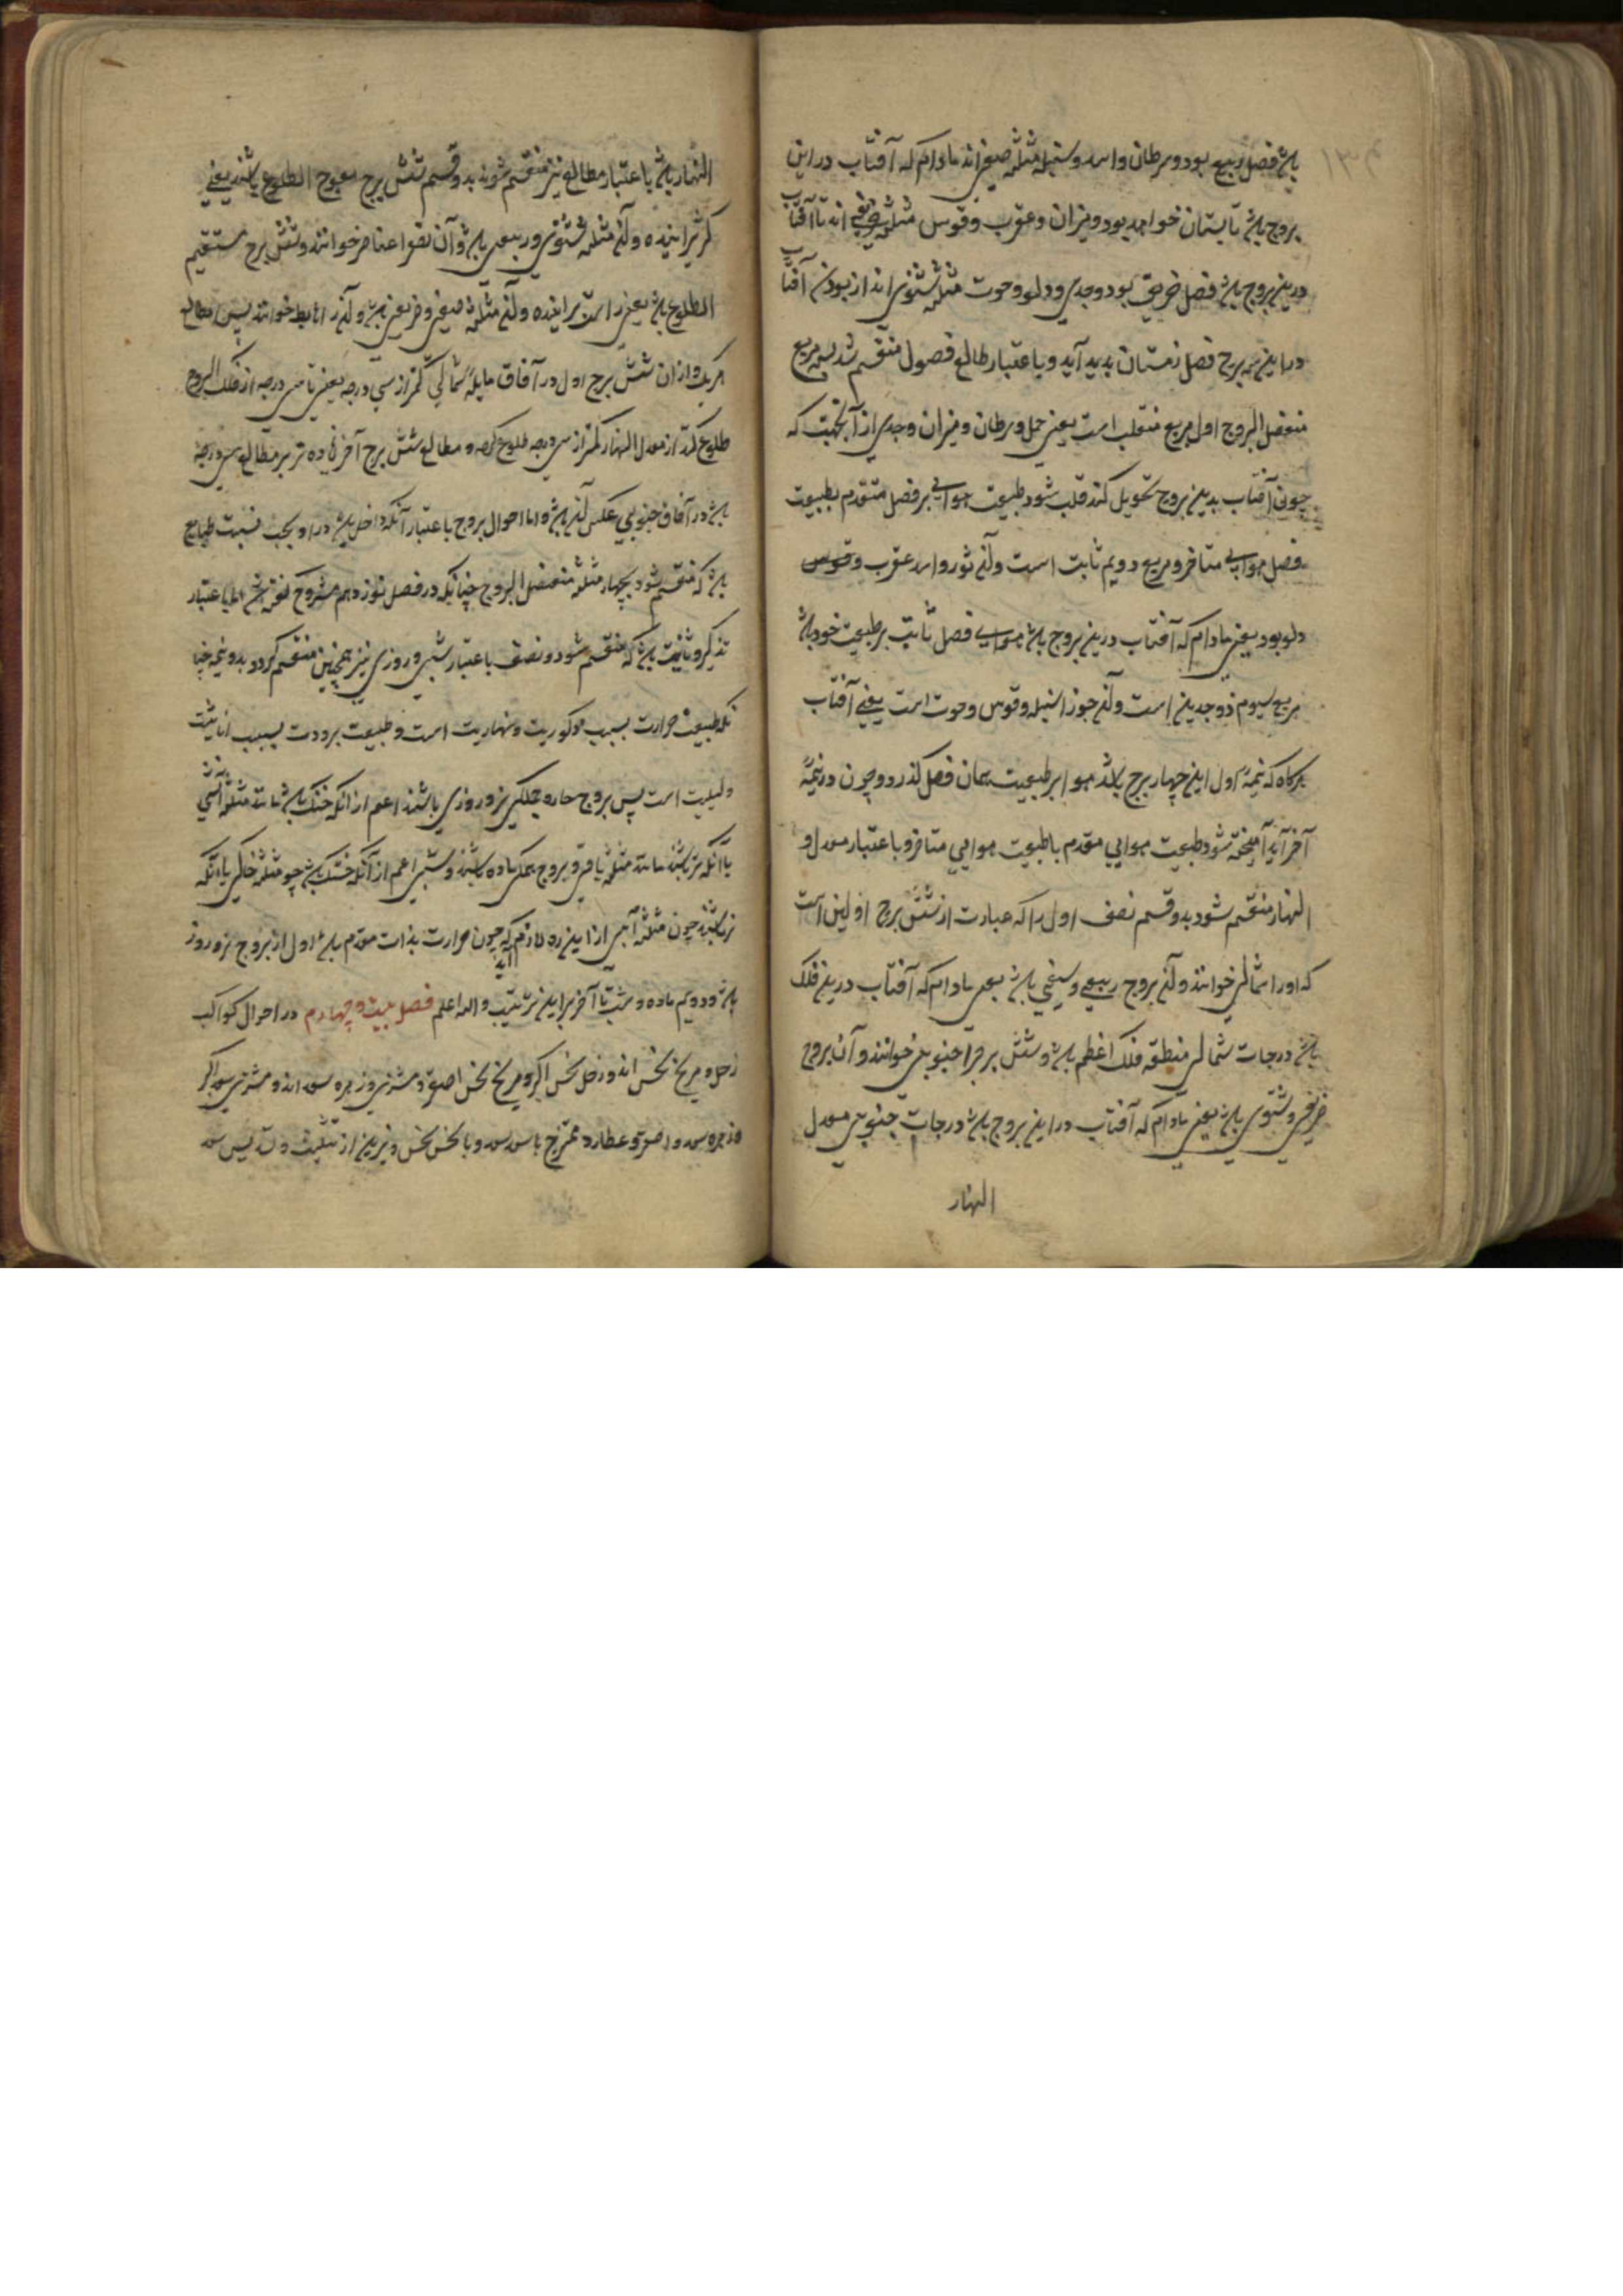 باشد فصل ربیع بود و سرطان و اسد و سنبله مثلثه صیفی اند مادام که آفتاب در این
بروج باشد تابستان خواهد بود و میزان و عقرب و قوس مثلثه خریفی اند تا آفتاب
درین بروج باشد فصل خریف بود و جدی و دلو و حوت مثلثه شتوی اند از بودن آفتاب
در این سه برج فصل زمستان بدید آید و باعتبار طالع فصول منقسم شد بسه مربع
منفصل البروج اول مربع منقلب است یعنی حمل و سرطان و میزان و جدی از آنجهت که
چون آفتاب بدین بروج تحویل کند قلب شود طبیعت هوایی بر فصل متقدم بطبیعت
فصل هوایی متاخر و مربع دویم ثابت است و آن ثور و اسد عقرب و قوس
دلو بود یعنی مادام که آفتاب درین بروج باشد هوایی فصل ثابت بر طبیعت خود باشد
مربع سیوم ذو جدین است و آن جوزا سنبله و قوس و حوت است یعنی آفتاب
هرکاه که نیمهٔ اول این چهار برج باشد هوا بر طبیعت همان فصل کذرد و چون در نیمهٔ
آخر آید آمیخته شود طبیعت هوایی مقدم با طبیعت هوایی متاخر و باعتبار معدل و
النهار منقسم شود بدو قسم نصف اول را که عبارت از شش برج اولین است
که او را شمالی خوانند و آن بروج ربیعی و صیفی باشد یعنی مادام که آفتاب درین فلک
باشد درجات شمالی منطقه فلک اعظم باشد و شش برج را جنوبی خوانند و آن بروج
خریفی و شتوی باشد یعنی مادام که آفتاب در این بروج باشد درجات جنوبی معدل
النهار
النهار باشد باعتبار مطالع نیز منقسم شوند بدو قسم شش برج معوج الطلوع باشند یعنی
کژ براینده و آن مثلثه شتوی و ربیعی باشد و آن خوانند و شش برج مستقیم
الطلوع باشد یعنی راست براینده و آن مثلثه صیفی و خریفی باشد و آن را خوانند پس مطالع
هر یک از ان شش برج اول در آفاق مایلهٔ شمالی کمتر از سی درجه یعنی تا سی درجه از فلک البروج
طلوع کند از معدل النهار کمتر از سی درجه طلوع کرده و مطالع شش برج آخر زیاده تر بر مطالع سی درجه
باشد در آفاق جنوبی عکس آن باشد و اما احوال بروج باعتبار آنکه داخل باشد در او بحسب نسبت طبایع
باشد که منقسم شود بچهار مثلثه منفصل البروج چنانکه در فصل نوزدهم مشروح کفته شد اما باعتبار
تذکیر و تانیث باشد که منقسم شود و نصف باعتبار شبی و روزی نیز همچنین منقسم کردد بدو نیمه چنا
نکه طبیعت حرارت بسبب ذکوریت و نهاریت است و طبیعت برودت بسبب انانیت
و لیلیت است پس بروج حاره جملکی نر و روزی باشند اعم از انکه خشک باشد مانند مثلثه آتشی
یا آنکه تر باشند مانند مثلثه و بروج همکی ماده باشند و شبی اعم از آنکه خشک باشد چو مثلثه خاکی یا انکه
تر باشند چون مثلثه آبی از این ره لازم آید که چون حرارت بذات مقدم باشد اول از بروج نر و روز
باشد و دویم ماده و شب تا آخر برین ترتیب و الله اعلم فصل بیست و چهارم در احوال کواکب
زحل و مریخ نحس اند و زحل نحس اکبر و مریخ نحس اصغر و مشتری و زهره سعد اند و مشتری سعد اکبر
و زهره سعد و اصغر و عطارد ممتزج با سعد سعد و با نحس نحس و نیرین از تثلیث و تسدیس سعد